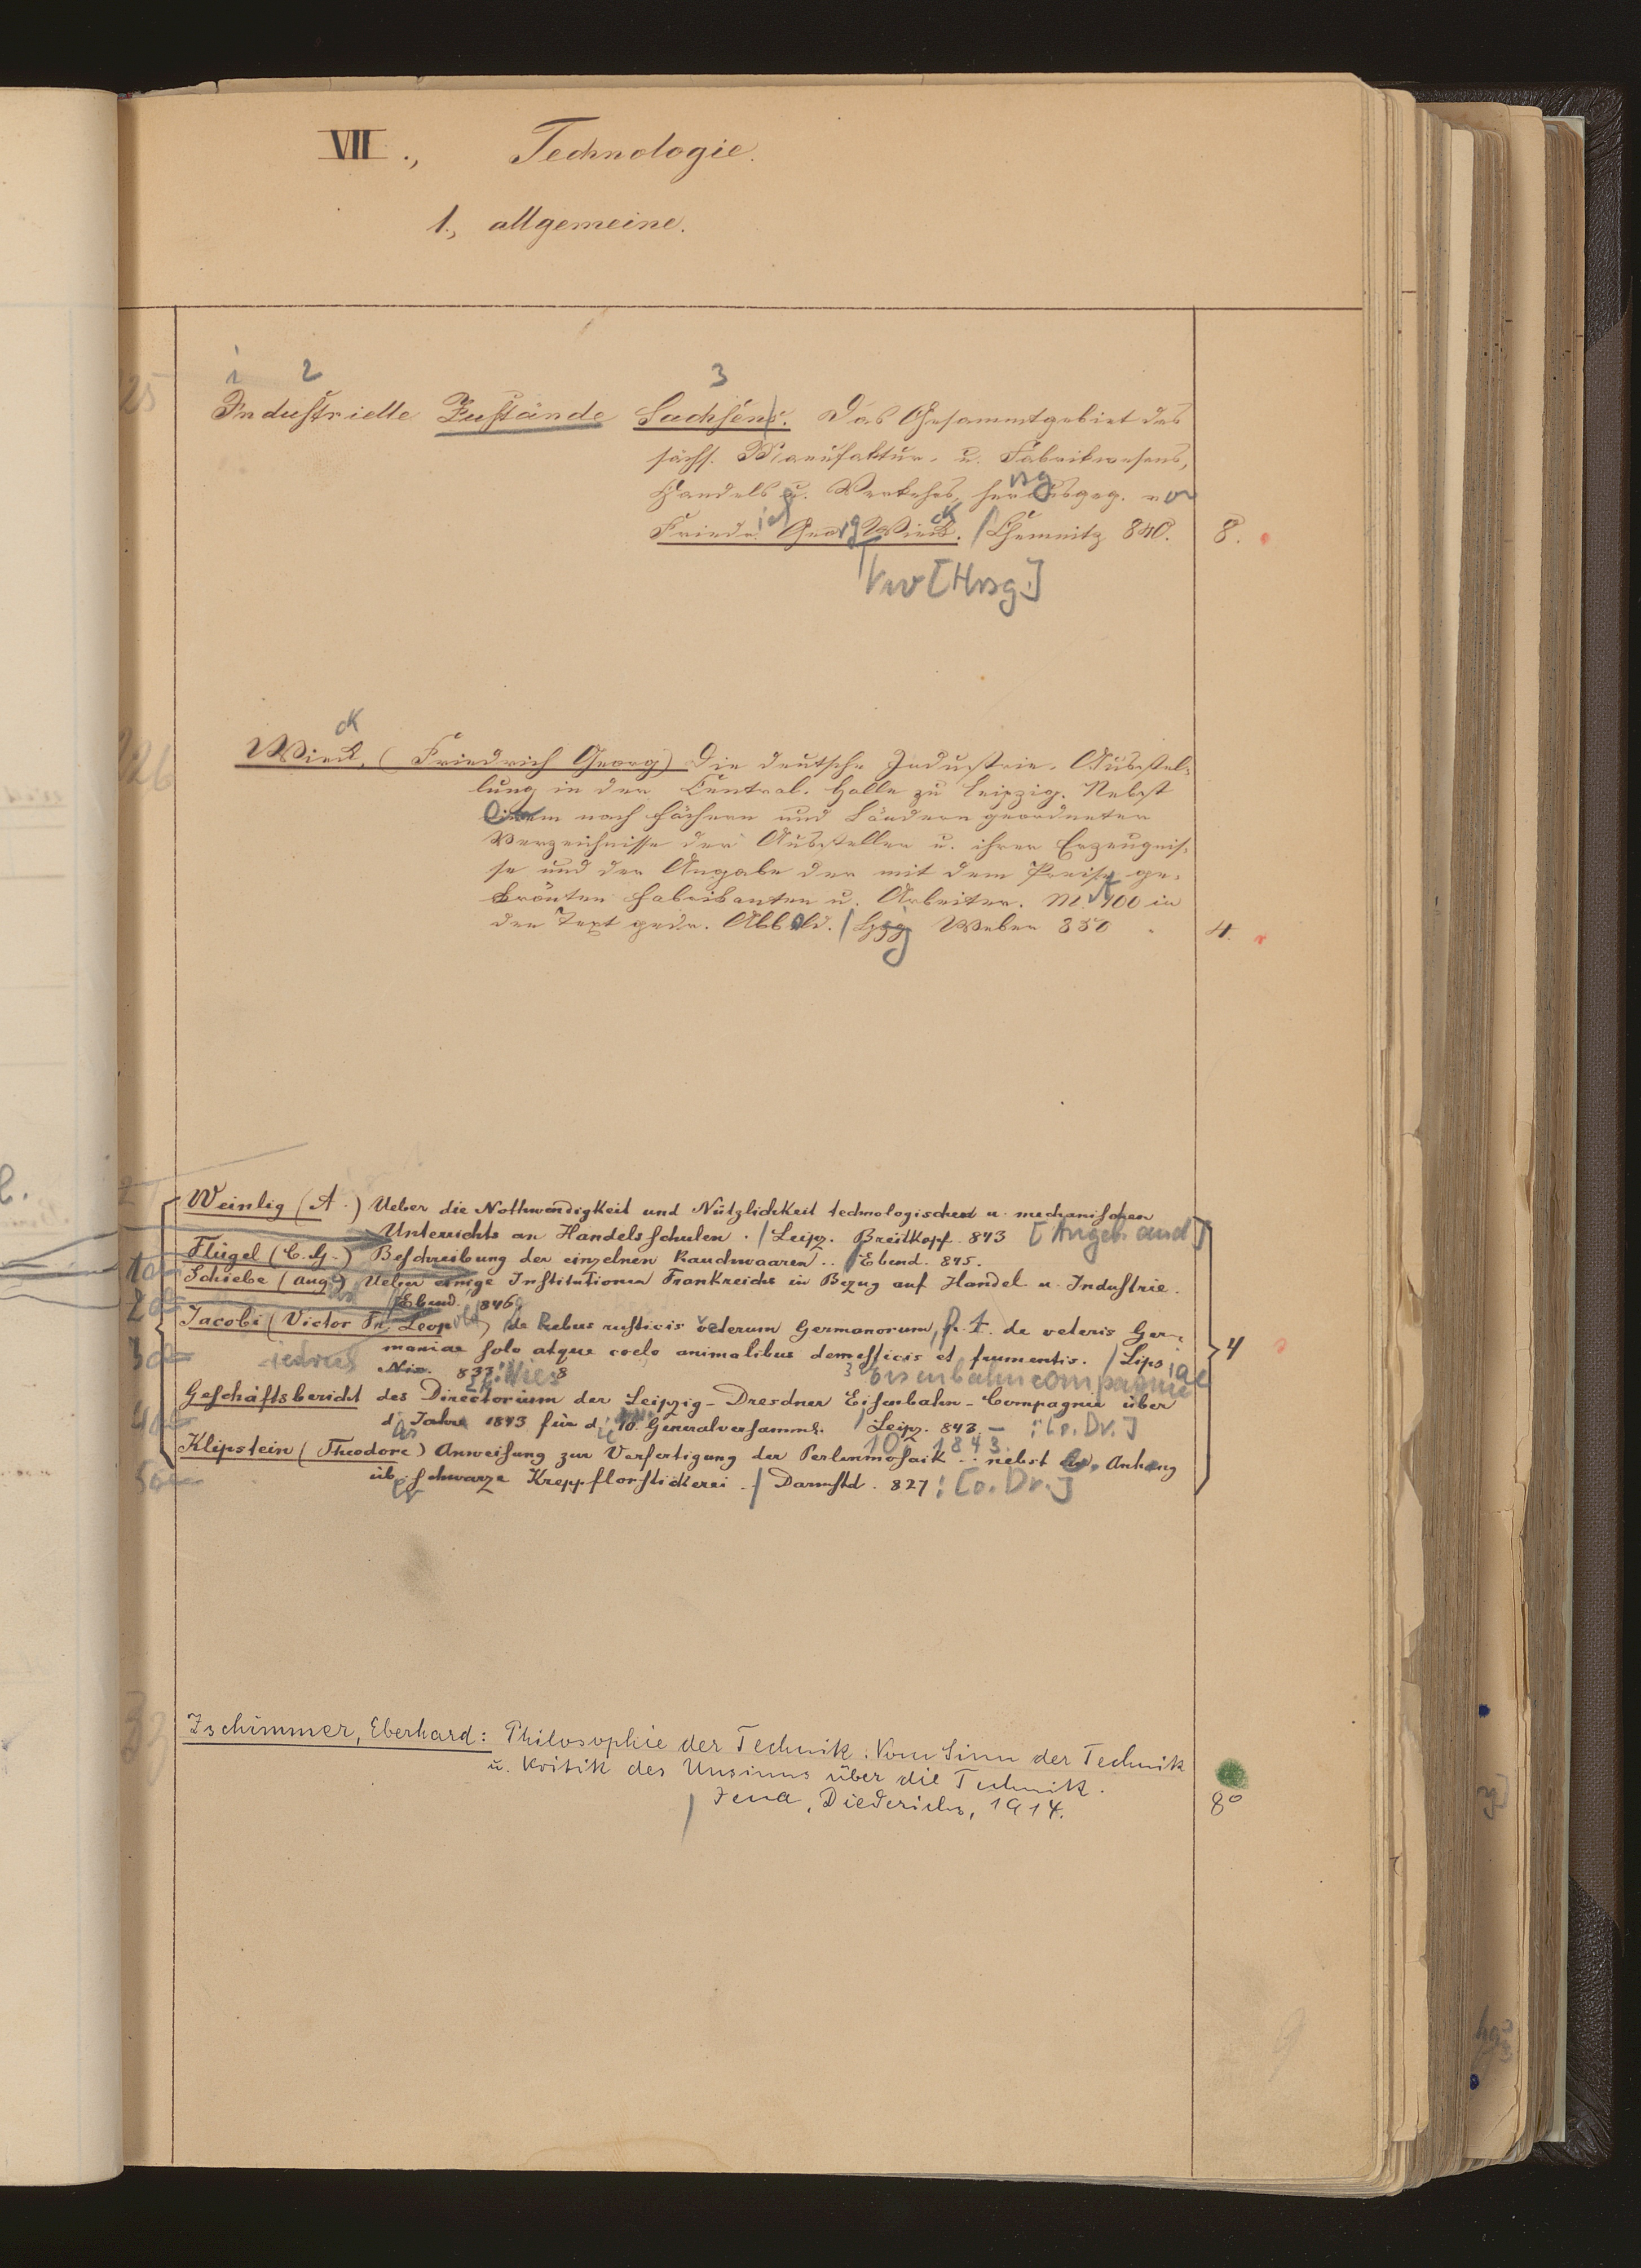 VII., Technologie.
1., allgemeine.
1 2 3
25
Industrielle Zustände Sachsens. Das Gesammtgebiet des
sächs. Manufaktur- u. Fabrikwesens,
Handels u. Verkehrs, herausgeg. von
Friedr. Georg Wieck. / Chemnitz 840. 8.
Vw [Hrsg.]
ck
26
Wieck, (Friedrich Georg) Die deutsche Industrie-Ausstel-
lung in der Central-Halle zu Leipzig. Nebst
einem nach Fächern und Ländern geordneten
Verzeichnisse der Aussteller u. ihrer Erzeugnis-
se und der Angabe der mit dem Preise ge-
krönten Fabrikanten u. Arbeiter. M. 100 in
den Text gedr. Abbild. / Lpzg Weber 850 4.
Weinlig (A.) Ueber die Nothwendigkeit und Nützlichkeit technologischen u. mechanischen
Unterrichts an Handelsschulen. / Leipz. Breitkopf. 843 [Angeb. and]
Flügel (C. G.) Beschreibung der einzelnen Rauchwaaren .. / Ebend. 845.
Schiebe (Aug.) Ueber einige Institutionen Frankreichs in Bezug auf Handel u. Industrie.
Ebend. 846.
Jacobi (Victor Fr. Leopold) de Rebus rusticis veterum Germanorum, p. I. de veteris Ger-
maniae solo atque coelo animalibus domesticis et frumentis. / Lipsiae
Nis. 833. 8
iedrich
3 Eisenbahncompagnie
Geschäftsbericht des Directorium der Leipzig-Dresdner Eisenbahn-Compagnie über
d. Jahr 1843 für d. 10. Generalversamml. / Leipz. 843. – : [o. Dr.]
10, 1843.
Klipstein (Theodore) Anweisung zur Verfertigung der Perlenmosaik .. nebst Anhang
üb. schwarze Kreppflorstickerei .. / Darmstd. 827 : [o. Dr.]
4
Zschimmer, Eberhard: Philosophie der Technik. Vom Sinn der Technik
u. Kritik des Unsinns über die Technik.
/ Jena, Diederichs, 1914. 8°